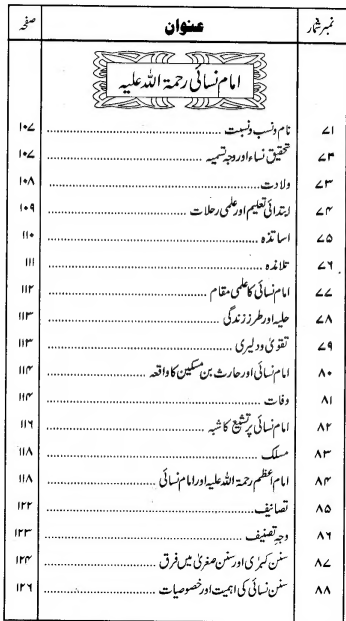 نمبر شمار عنوان صفحہ
امام نسائی رحمۃ اللہ علیہ
۷۱ نام و نسب و نسبت ........ ۱۰۷
۷۲ تحقیق نساء اور وجہ تسمیہ ........ ۱۰۷
۷۳ ولادت ........ ۱۰۸
۷۴ ابتدائی تعلیم اور علمی رحلات ........ ۱۰۹
۷۵ اساتذہ ........ ۱۱۰
۷۶ تلامذہ ........ ۱۱۱
۷۷ امام نسائی کا علمی مقام ........ ۱۱۲
۷۸ حلیہ اور طرز زندگی ........ ۱۱۳
۷۹ تقویٰ و دلیری ........ ۱۱۳
۸۰ امام نسائی اور حارث بن مسکین کا واقعہ ........ ۱۱۴
۸۱ وفات ........ ۱۱۴
۸۲ امام نسائی پر تشیع کا شبہ ........ ۱۱۶
۸۳ مسلک ........ ۱۱۸
۸۴ امام اعظم رحمۃ اللہ علیہ اور امام نسائی ........ ۱۱۸
۸۵ تصانیف ........ ۱۲۲
۸۶ وجہ تصنیف ........ ۱۲۳
۸۷ سنن کبریٰ اور سنن صغریٰ میں فرق ........ ۱۲۴
۸۸ سنن نسائی کی اہمیت اور خصوصیات ........ ۱۲۶